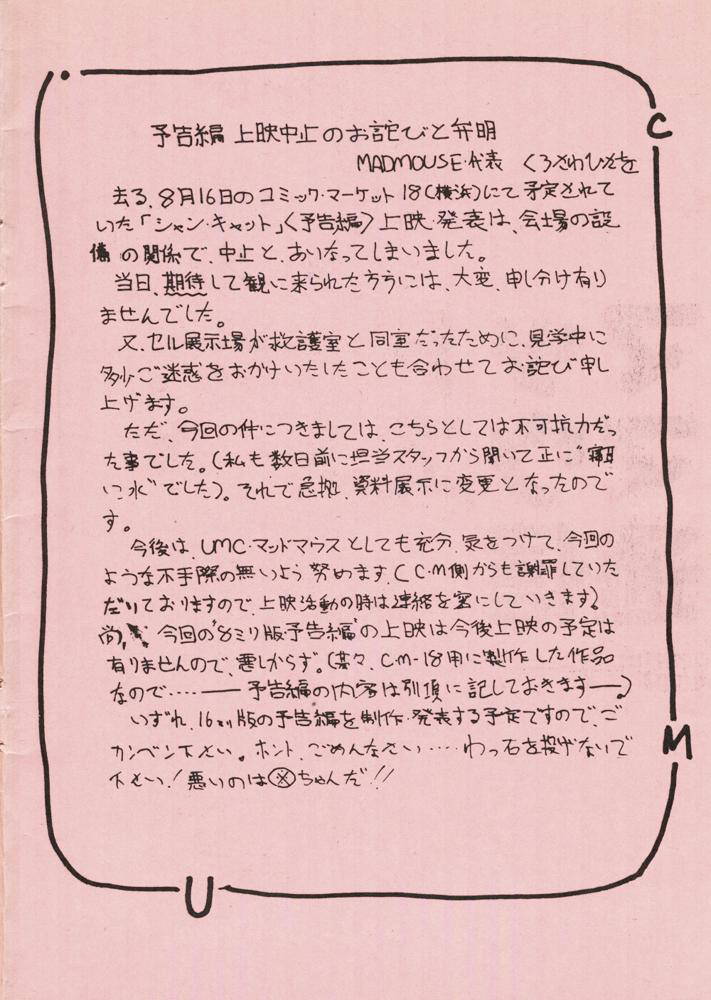 予告編 上映中止のお詫びと弁明
MADMOUSE・代表 くろさわひさを
去る、8月16日のコミック・マーケット18(横浜)にて予定されて
いた「シャン・キャット」〈予告編〉上映・発表は、会場の設
備の関係で、中止と、あいなってしまいました。
当日、期待して観に来られた方うには、大変、申し分け有り
ませんでした。
又、セル展示場が救護室と同室だったために、見学中に
多少ご迷惑をおかけいたしたことも合わせてお詫び申し
上げます。
ただ、今回の件につきましては、こちらとしては不可抗力だっ
た事でした。(私も数日前に担当スタッフから聞いて正に“寝耳
に水”でした)。それで急拠、資料展示に変更となったので
す。
今後は、UMC・マッドマウスとしても充分、気をつけて、今回の
ような不手際の無いよう努めます。(C・M側からも謝罪していた
だいておりますので、上映活動の時は連絡を密にしていきます)
尚、今回の“8ミリ版予告編”の上映は今後上映の予定は
有りませんので、悪しからず。(某々、C・M-18用に製作した作品
なので‥‥‥――予告編の内容は別項に記しておきます――。)
いずれ、16ミリ版の予告編を制作・発表する予定ですので、ご
カンベン下さい。ホント、ごめんなさい‥‥わっ石を投げないで
下さい!悪いのは㊛ちゃんだ!!
C
M
U